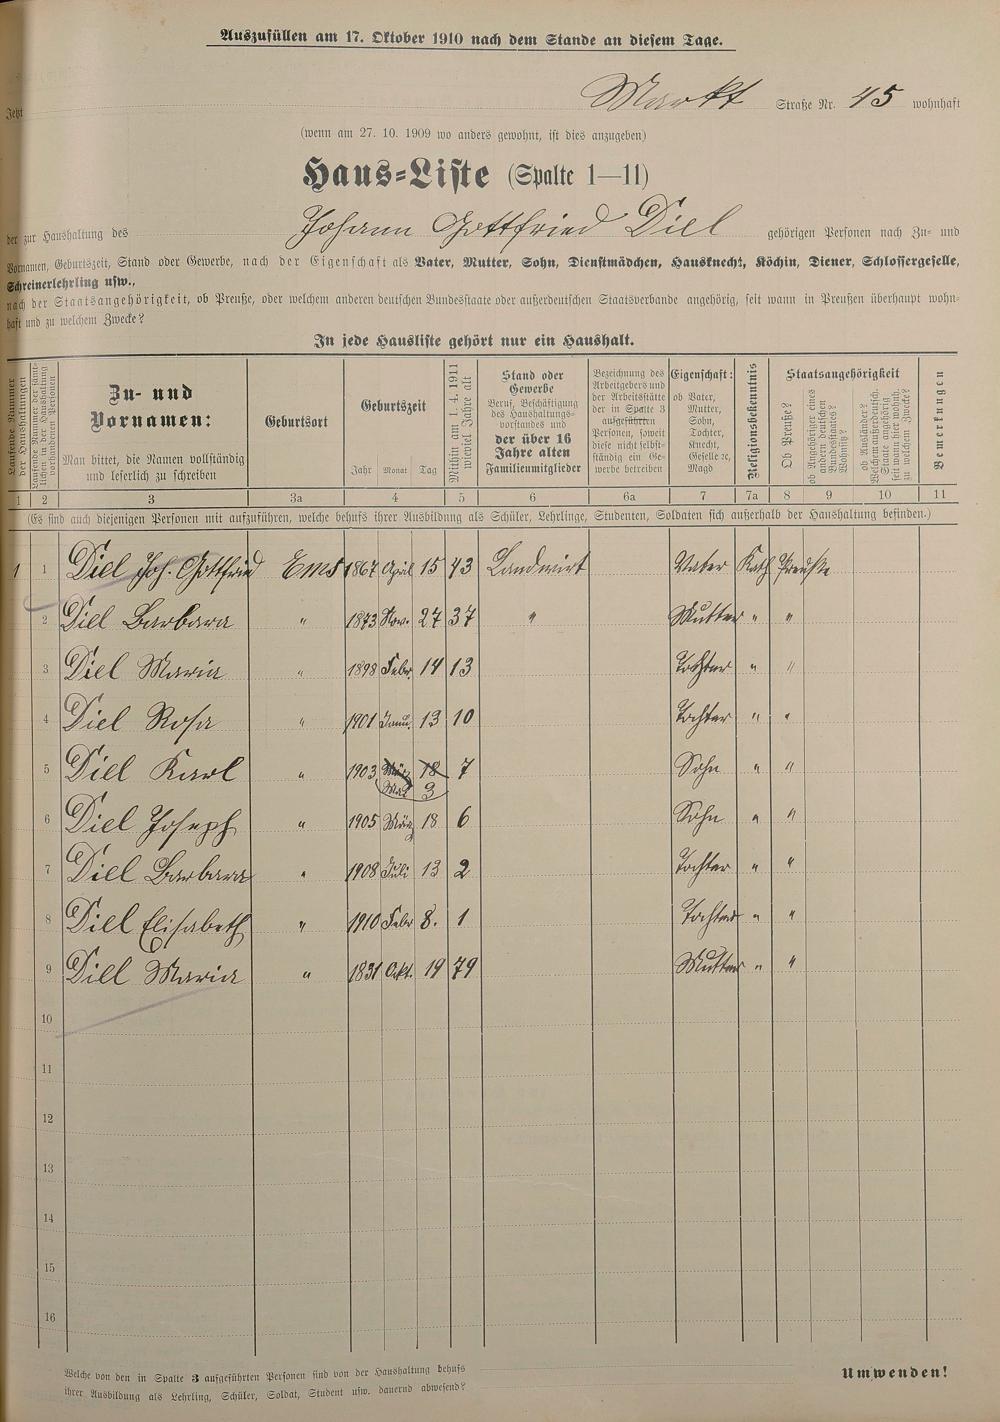 Auszufüllen am 17. Oktober 1910 nach dem Stande an diesem Tage.
Jetzt Markt Straße Nr. 45 wohnhaft
(wenn am 27. 10. 1909 wo anders gewohnt, ist dies anzugeben)
Haus-Liste (Spalte 1—11)
der zur Haushaltung des Johann Gottfried Diel gehörigen Personen nach Zu- und
Vornamen, Geburtszeit, Stand oder Gewerbe, nach der Eigenschaft als Vater, Mutter, Sohn, Dienstmädchen, Hausknecht, Köchin, Diener, Schlossergeselle,
Schreinerlehrling usw.,
nach der Staatsangehörigkeit, ob Preuße, oder welchem anderen deutschen Bundesstaate oder außerdeutschen Staatsverbande angehörig, seit wann in Preußen überhaupt wohn-
haft und zu welchem Zwecke?
In jede Hausliste gehört nur ein Haushalt.
Laufende Nummer der Haushaltungen
Laufende Nummer der sämt-lichen in der Haushaltung vorhandenen Personen
Zu- und
Vornamen:
Man bittet, die Namen vollständig
und leserlich zu schreiben
Geburtsort
Geburtszeit
Jahr Monat Tag
Mithin am 1. 4. 1911 wieviel Jahre alt
Stand oder
Gewerbe
Beruf, Beschäftigung
des Haushaltungs-
vorstandes und
der über 16
Jahre alten
Familienmitglieder
Bezeichnung des
Arbeitgebers und
der Arbeitsstätte
der in Spalte 3
aufgeführten
Personen, soweit
diese nicht selbst-
ständig ein Ge-
werbe betreiben
Eigenschaft:
ob Vater,
Mutter,
Sohn,
Tochter,
Knecht,
Geselle 2c,
Magd
Religionsbekenntnis
Staatsangehörigkeit
Ob Preuße?
ob Angehöriger eines andern deutschen Bundesstaates? Wohnsitz?
ob Ausländer? Welchem außerdeutsch. Staate angehörig seit wann hier wohnh. zu welchem Zwecke?
Bemerkungen
1 2 3 3a 4 5 6 6a 7 7a 8 9 10 11
(Es sind auch diejenigen Personen mit aufzuführen, welche behufs ihrer Ausbildung als Schüler, Lehrlinge, Studenten, Soldaten sich außerhalb der Haushaltung befinden.)
1 1 Diel Joh. Gottfried Ems 1867 April 15 43 Landwirt Vater Kath Preuße
2 Diel Barbara " 1873 Nov. 27 37 " Mutter " "
3 Diel Maria " 1898 Febr. 14 13 Tochter " "
4 Diel Rosa " 1901 Janu. 13 10 Tochter " "
5 Diel Karl " 1903 März 18 7 Sohn " "
Mai 3
6 Diel Joseph " 1905 März 18 6 Sohn " "
7 Diel Barbara " 1908 Juli 13 2 Tochter " "
8 Diel Elisabeth " 1910 Febr 8. 1 Tochter " "
9 Diel Maria " 1831 Okt. 19 79 Mutter " "
10
11
12
13
14
15
16
Welche von den in Spalte 3 aufgeführten Personen sind von der Haushaltung behufs
ihrer Ausbildung als Lehrling, Schüler, Soldat, Student usw. dauernd abwesend?
Umwenden!